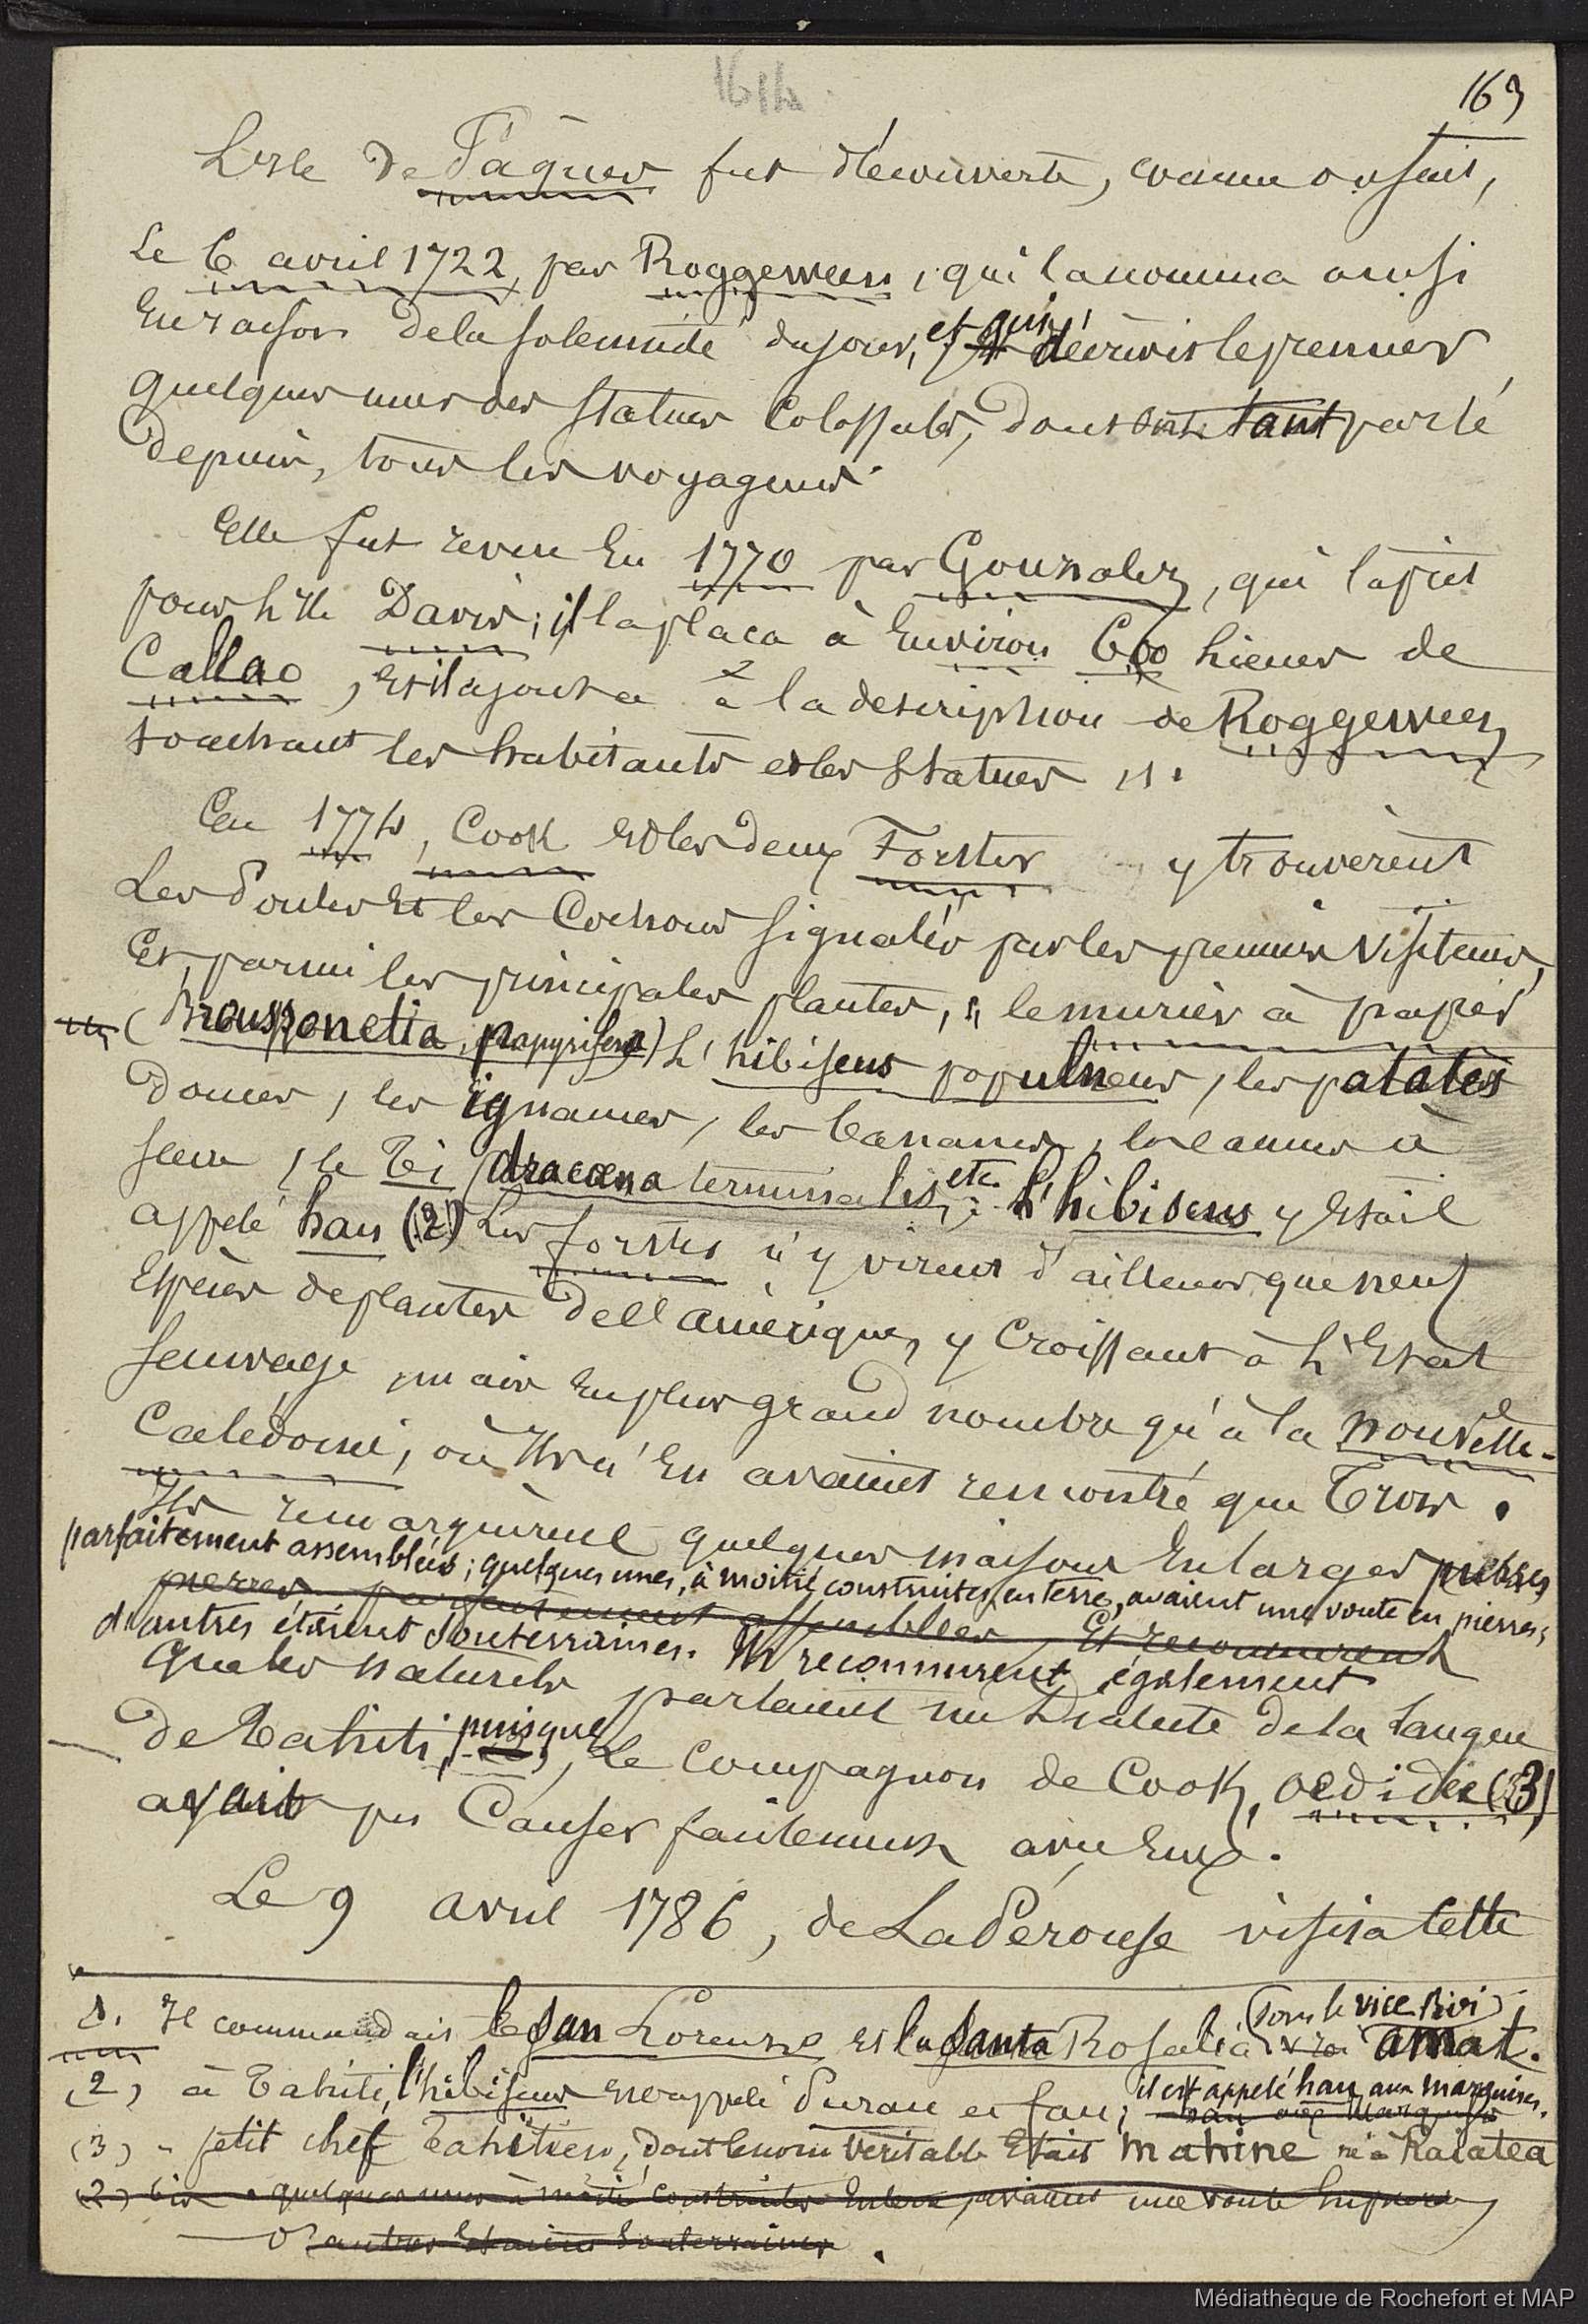 164
163
L'isle de Pâques fut découverte, comme on sait,
le 6 avril 1722, par Roggeween, qui la nomma ainsi
En raison de la solemnité du jour, et qui décrivit le premier
quelques unes des Statues Colossales, dont ont tant parlé
depuis, tous les voyageurs.
Elle fut revue En 1770 par Gonzalez, qui la prit
pour l'île Davis; il la plaça à Environ 600 lieues de
Callao, Et il ajouta à la description de Roggeween
touchant les habitants et les Statues (1.
En 1774, Cook Et les deux Forster y trouvèrent
Les Poules Et les Cochons signalés par les premiers visiteurs,
Et, parmi les principales plantes, le murier à papier
(Broussonetia, papyrifera) L'hibiscus populneus, les patates
douces, les ignames, les bananes, les cannes à
sucre, le Ti (dracœna terminalis, etc. L'hibiscus y Etait
appelé hau (2) Les forster n'y virent d'ailleurs que neuf
Espèces de plantes de l'amérique, y Croissant à l'Etat
sauvage, mais En plus grand nombre qu'à la nouvelle-
Calédonie, où Ils n'En avaient rencontré que Trois.
Ils remarquèrent quelques maisons En larges pierres
parfaitement assemblées; quelques unes, à moitié construites en terre, avaient une voute en pierres;
pierres parfaitement assemblées, Et reconnurent
d'autres étaient souterraines. Ils reconnurent également
que les naturels parlaient un Dialecte de la langue
de Tahiti, puisque, Le Compagnon de Cook, oedidée (3)
avait pu Causer facilement avec Eux.
Le 9 avril 1786, de La Pérouse visita cette
1. Il commandait le San Lorenzo et la Santa Rosalia (Sous le vice Roi) amat.
(2) à Tahiti, l'hibiscus est appelé Purau et fau; il est appelé hau aux marquises.
hau aux Marquises
(3) - petit chef Tahitien, dont le nom véritable Etait mahine né à Raiatea
(2) bis - quelques unes à moitié construites En terre, avaient une voute En pierres,
D'autres Etaient Souterraines.
Médiathèque de Rochefort et MAP